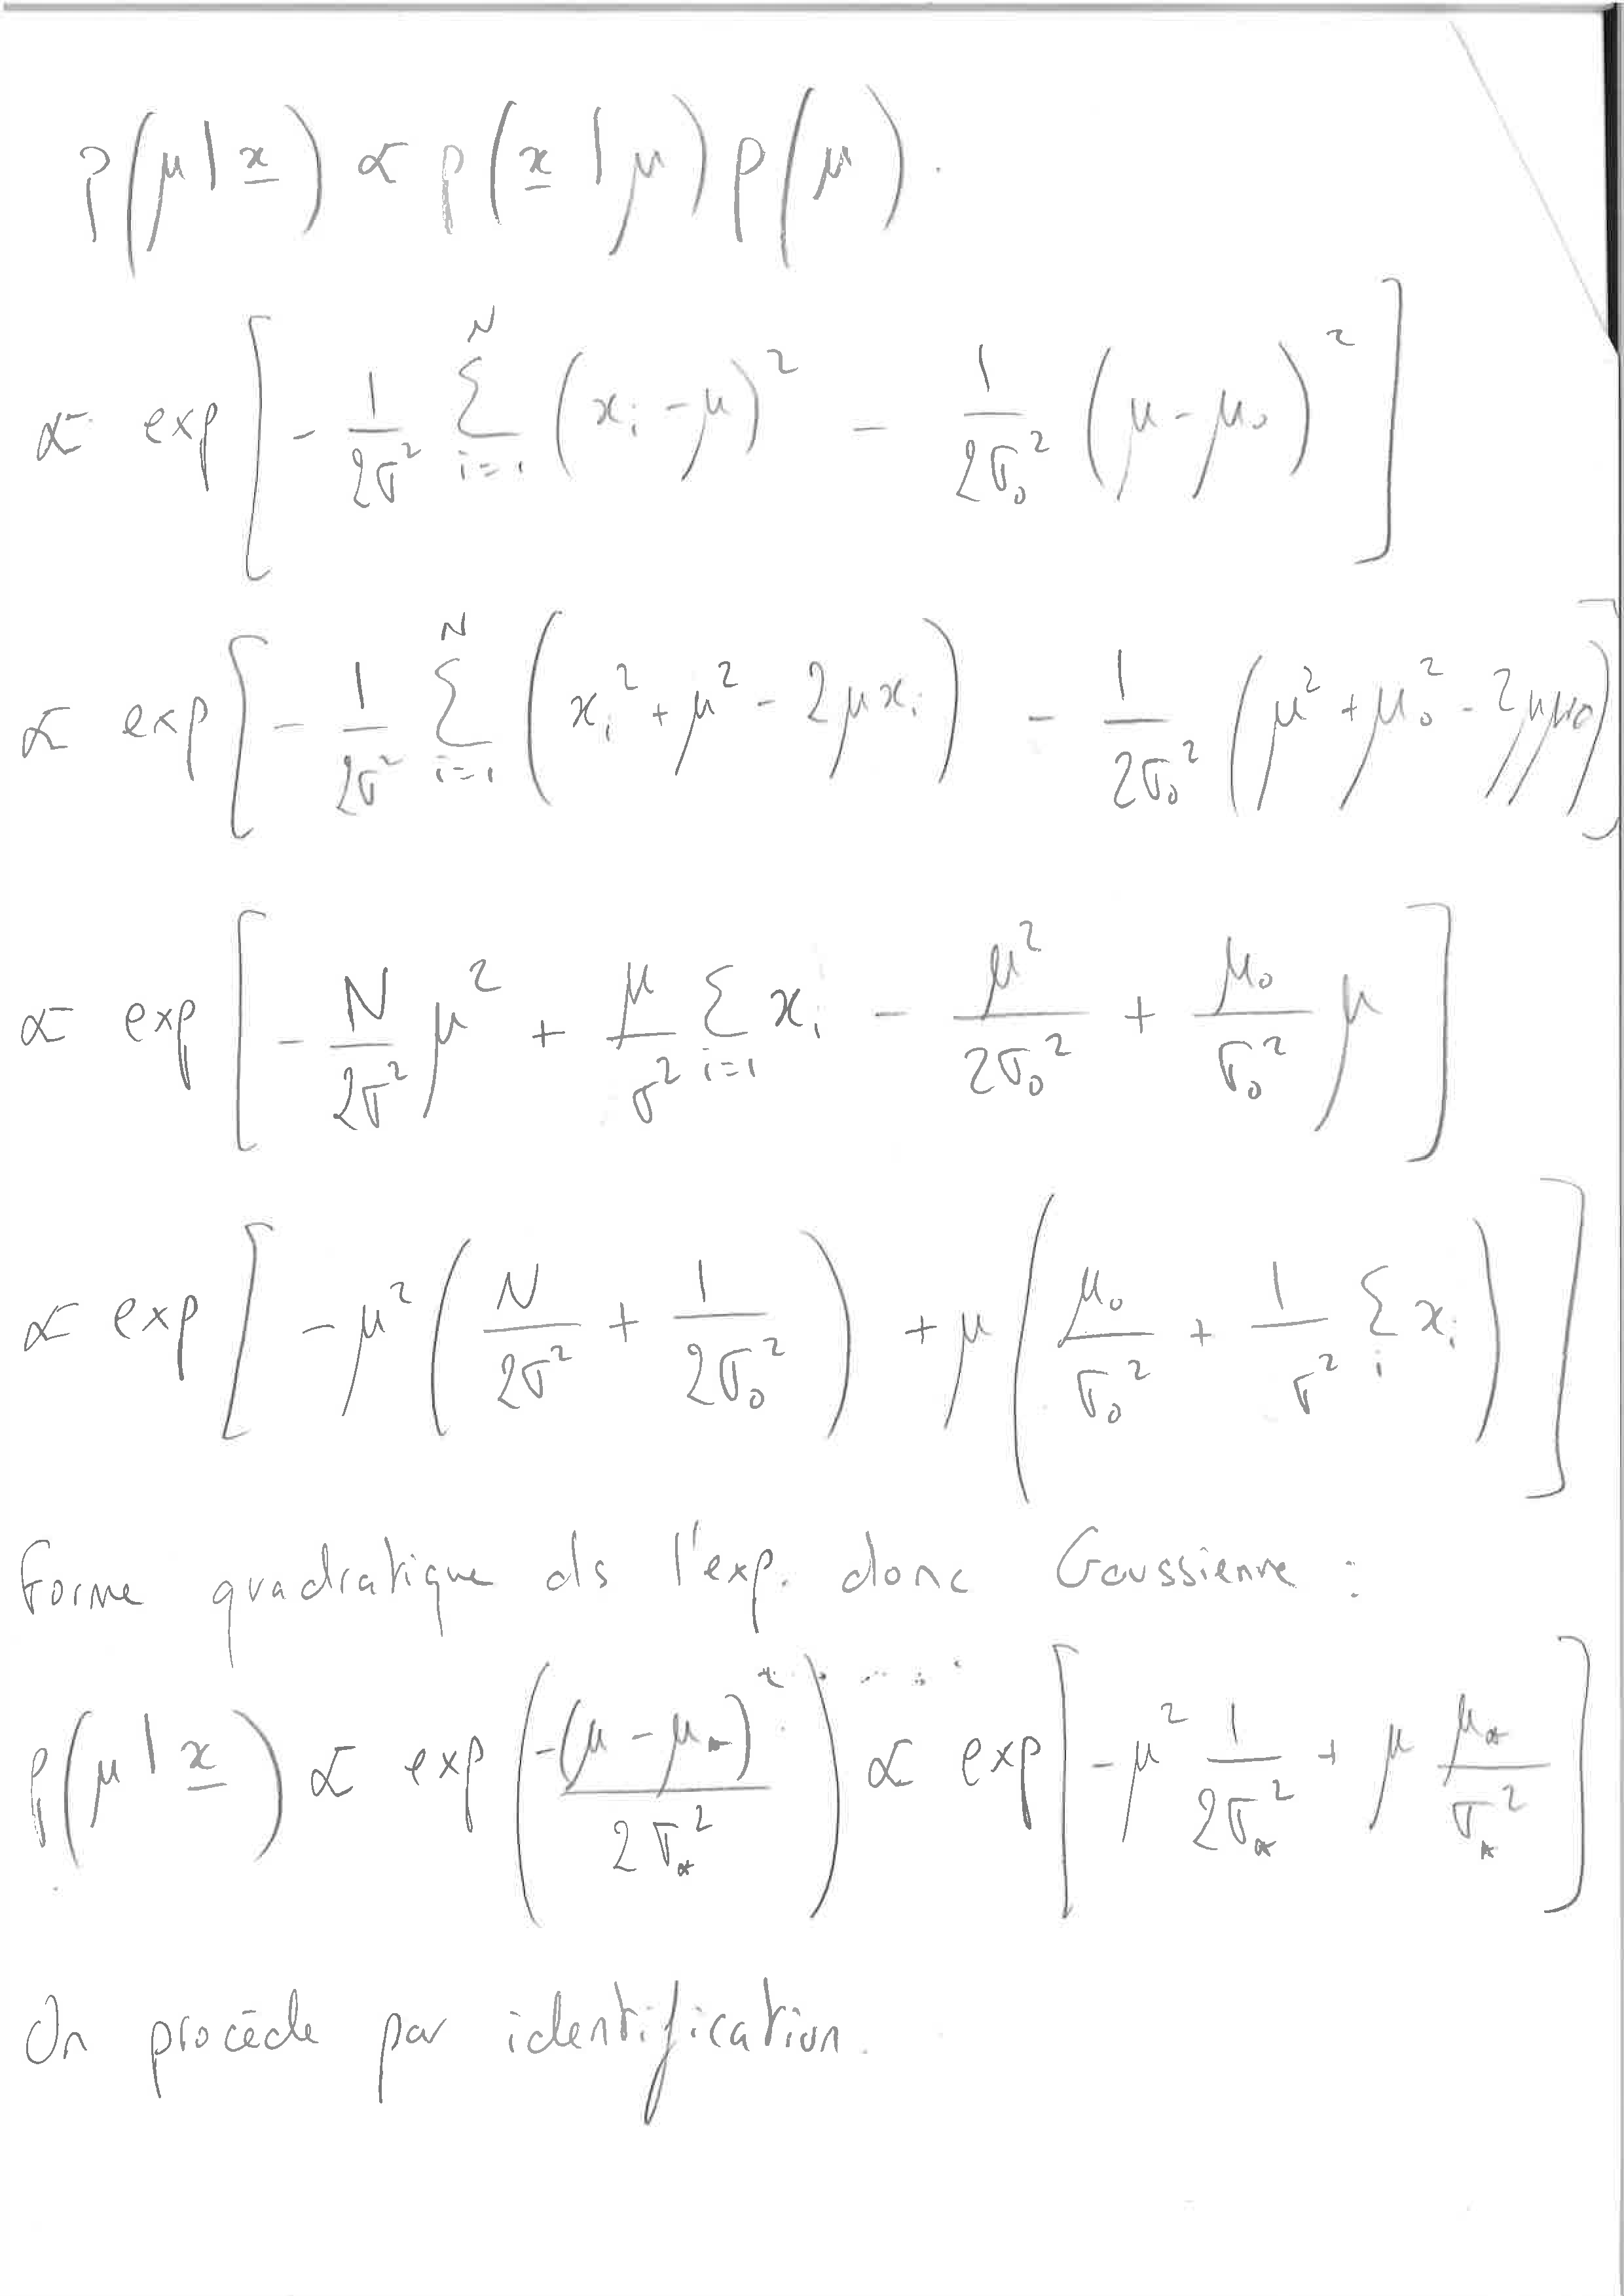 p(μ | x̲) ∝ p(x̲ | μ) p(μ).
∝ exp[ - 1/(2σ²) Σ_{i=1}^{N} (x_i - μ)² - 1/(2σ_0²) (μ - μ_0)² ]
∝ exp[ - 1/(2σ²) Σ_{i=1}^{N} (x_i² + μ² - 2μx_i) - 1/(2σ_0²) (μ² + μ_0² - 2μμ_0) ]
∝ exp[ - N/(2σ²) μ² + μ/σ² Σ_{i=1} x_i - μ²/(2σ_0²) + μ_0/σ_0² μ ]
∝ exp[ - μ² ( N/(2σ²) + 1/(2σ_0²) ) + μ ( μ_0/σ_0² + 1/σ² Σ_i x_i ) ]
Forme quadratique ds l'exp. donc Gaussienne :
p(μ | x̲) ∝ exp( -(μ - μ_*)² / (2σ_*²) ) ∝ exp[ - μ² 1/(2σ_*²) + μ μ_*/σ_*² ]
On procède par identification.